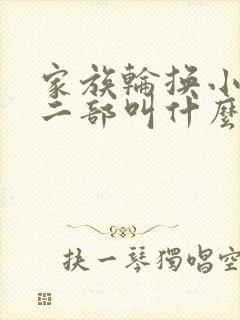 家族輪換小
二部叫什麼
抉一琴獨唱空